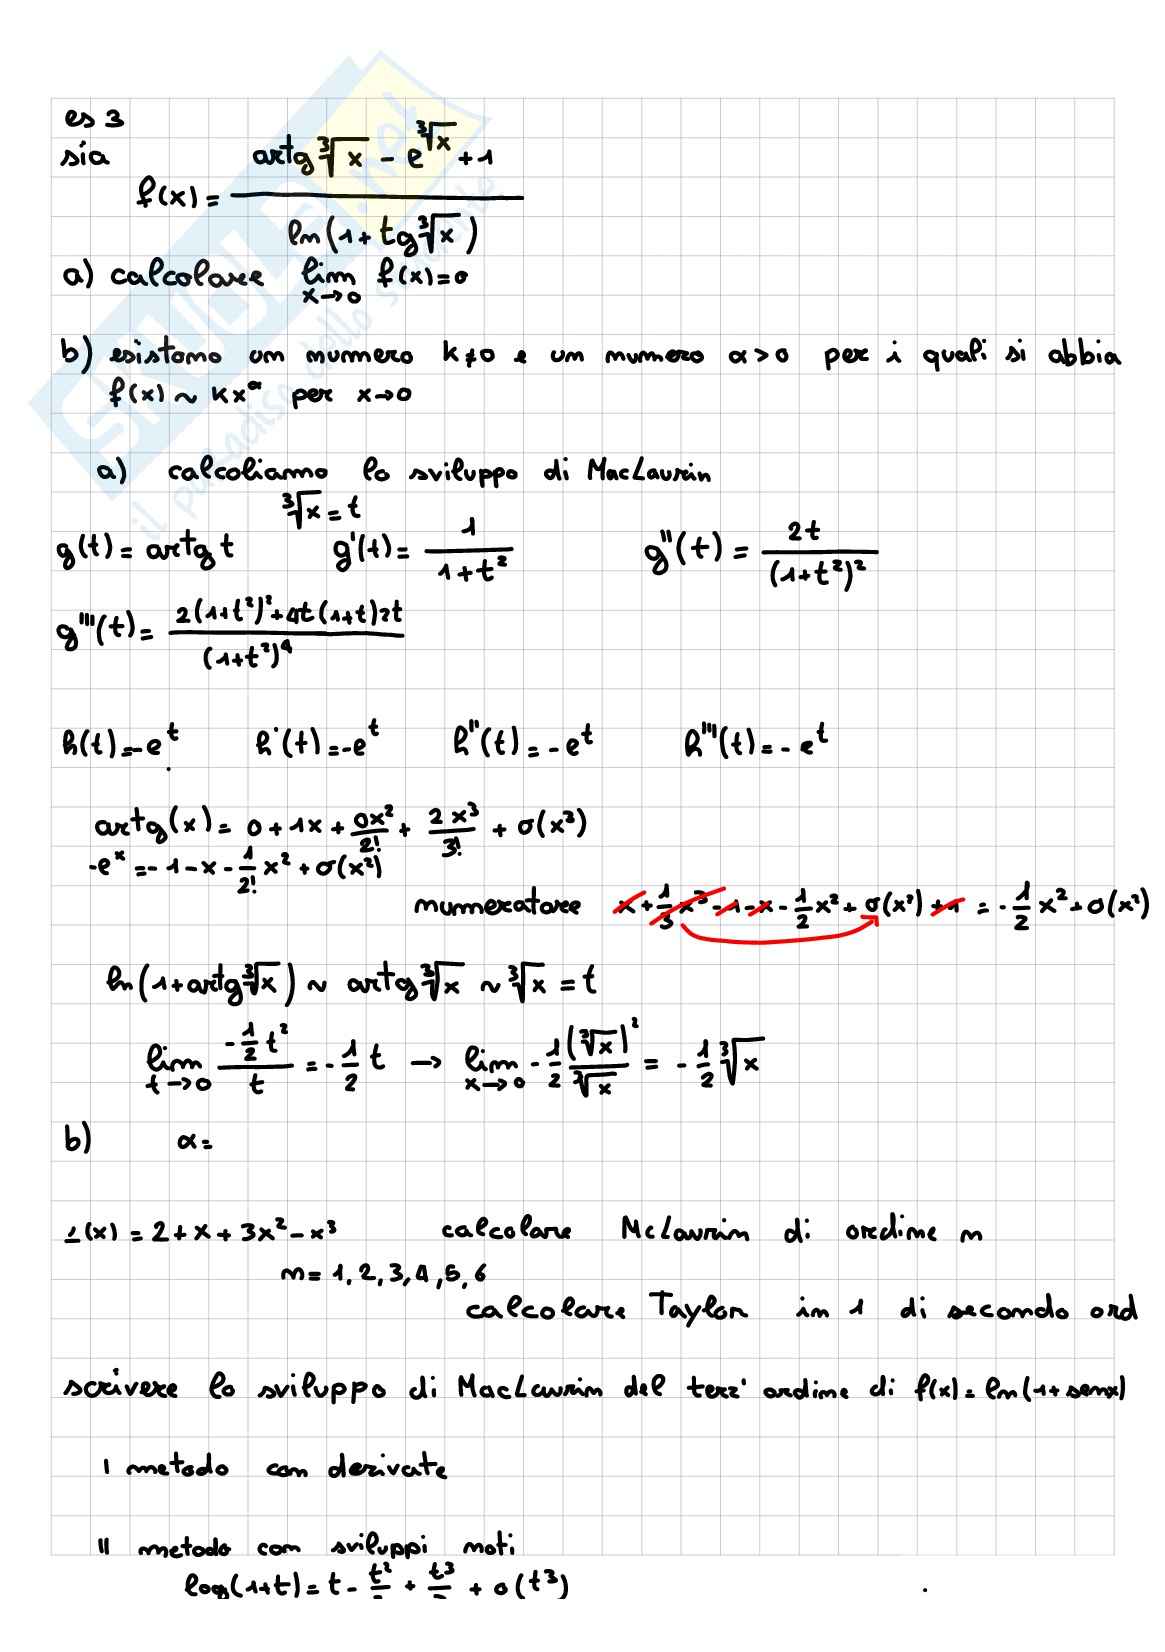 es 3
sia f(x) = (artg ∛x - e^∛x + 1) / ln(1 + tg ∛x)
a) calcolare lim x→0 f(x) = 0
b) esistono un numero k≠0 e un numero α>0 per i quali si abbia
f(x) ~ kx^α per x→0
a) calcoliamo lo sviluppo di MacLaurin
∛x = t
g(t) = artg t g'(t) = 1/(1+t²) g''(t) = 2t/(1+t²)²
g'''(t) = (2(1+t²)² + 4t(1+t)2t)/(1+t²)⁴
h(t) = -e^t h'(t) = -e^t h''(t) = -e^t h'''(t) = -e^t
artg(x) = 0 + 1x + 0x²/2! + 2x³/3! + σ(x³)
-e^x = -1 - x - 1/2! x² + σ(x²)
numeratore x + 1/3 x³ - 1 - x - 1/2 x² + σ(x²) + 1 = -1/2 x² + σ(x²)
ln(1 + artg ∛x) ~ artg ∛x ~ ∛x = t
lim t→0 (-1/2 t²)/t = -1/2 t → lim x→0 -1/2 (∛x)²/∛x = -1/2 ∛x
b) α =
f(x) = 2 + x + 3x² - x³ calcolare McLaurin di ordine n
n = 1, 2, 3, 4, 5, 6
calcolare Taylor in 1 di secondo ord
scrivere lo sviluppo di MacLaurin del terz' ordine di f(x) = ln(1 + senx)
I metodo con derivate
II metodo con sviluppi noti
log(1+t) = t - t²/2 + t³/3 + o(t³)
SKUOLA.net
il paradiso dello studente